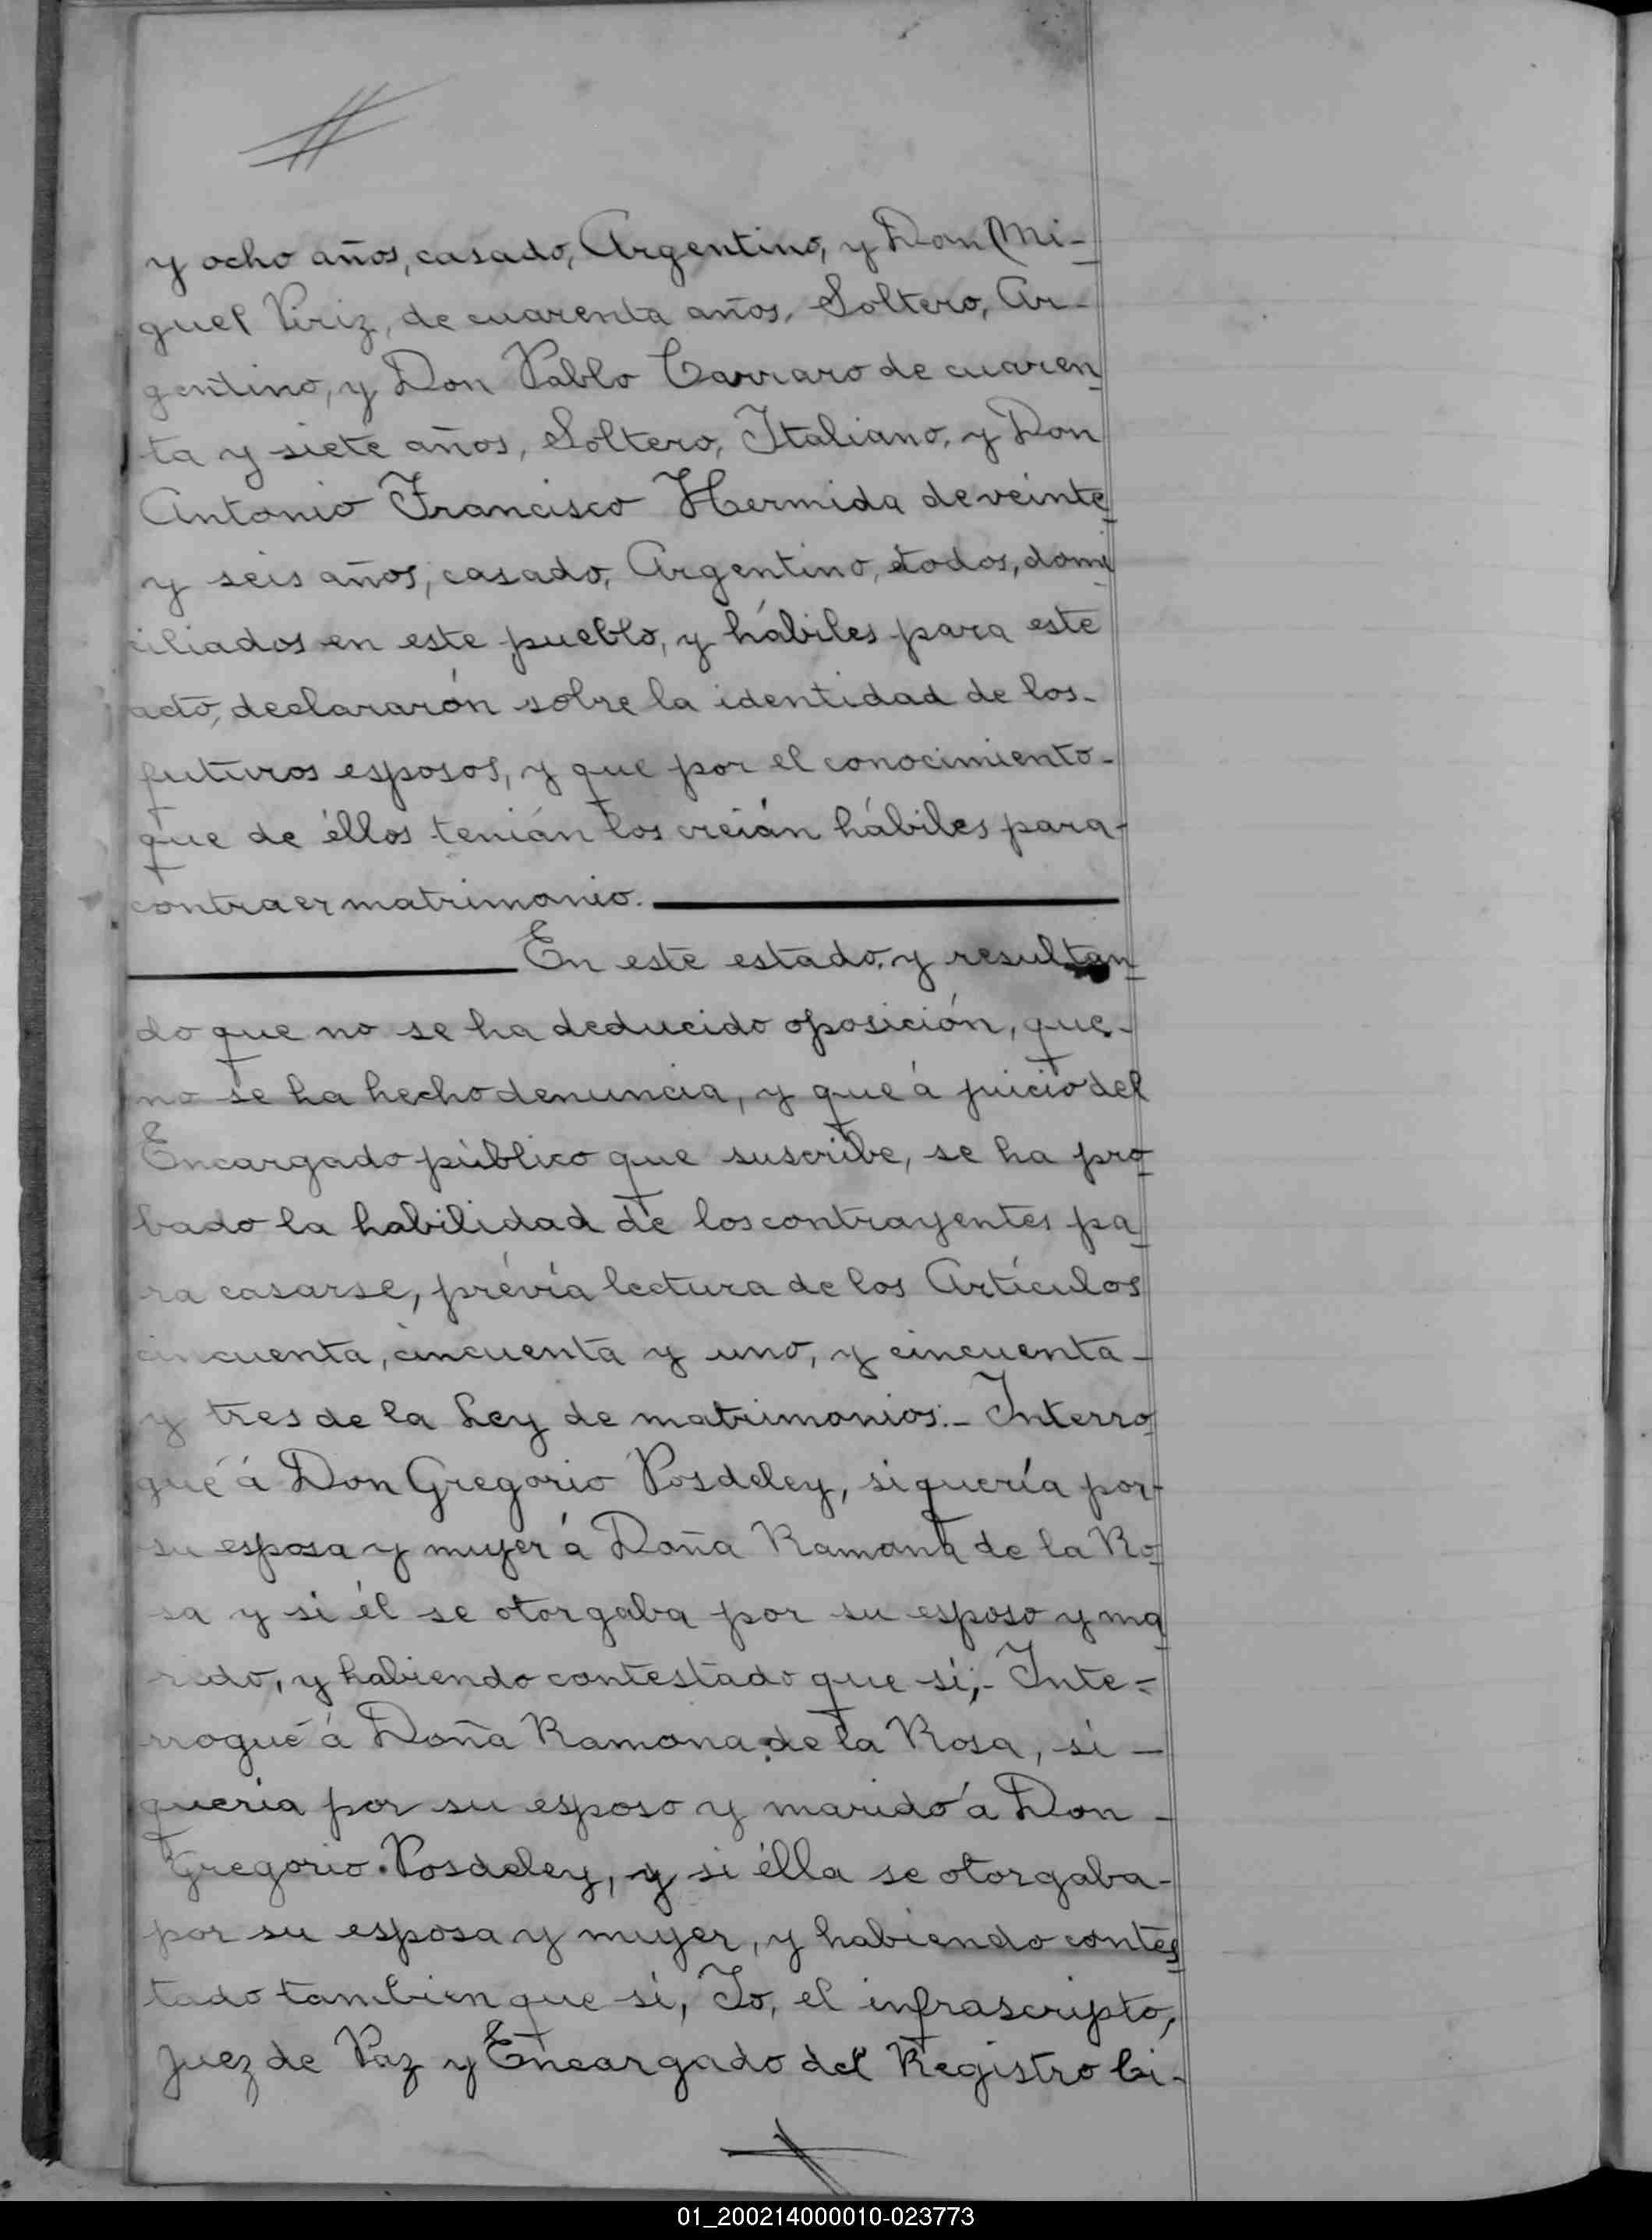 y ocho años, casado, Argentino, y Don Mi-
guel Piriz, de cuarenta años, Soltero, Ar-
gentino, y Don Pablo Carraro de cuaren
ta y siete años, Soltero, Italiano, y Don
Antonio Francisco Hermida de veinte
y seis años, casado, Argentino, todos, domi
ciliados en este pueblo, y hábiles para este
acto, declararón sobre la identidad de los-
futuros esposos, y que por el conocimiento-
que de éllos tenián los creián hábiles para-
contraer matrimonio.
En este estado, y resultan
do que no se ha deducido oposición, que-
no se ha hecho denuncia, y que á juicio del
Encargado público que suscribe, se ha pro
bado la habilidad de los contrayentes pa
ra casarse, prévia lectura de los Artículos
cincuenta, cincuenta y uno, y cincuenta-
y tres de la Ley de matrimonios.- Interro
gué á Don Gregorio Posdeley, si quería por-
su esposa y mujer á Doña Ramona de la Ro
sa y si él se otorgaba por su esposo y ma
rido, y habiendo contestado que sí;- Inte-
rrogué á Doña Ramona de la Rosa, si-
queria por su esposo y marido á Don-
Gregorio Posdeley, y si élla se otorgaba-
por su esposa y mujer, y habiendo contes
tado tambien que sí, Yo, el infrascripto,
Juez de Paz y Encargado del Registro Ci-
01_200214000010-023773